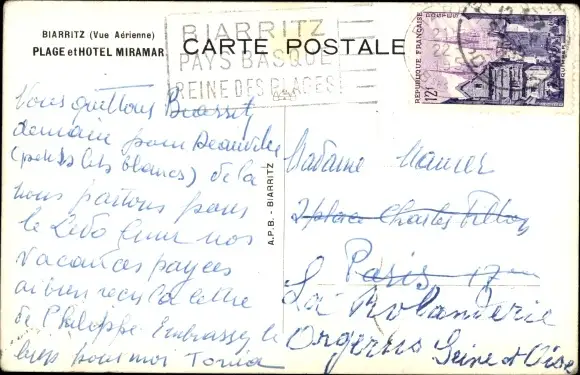 BIARRITZ (Vue Aérienne)
PLAGE et HOTEL MIRAMAR
BIARRITZ
PAYS BASQUE
REINE DES PLAGES
CARTE POSTALE
REPUBLIQUE FRANÇAISE
QUIMPER
12f
21
22
A.P.B. - BIARRITZ
Vous quittons Biarritz
demain pour Deauville
(petits lits blancs) de là
nous partons pour
le
vacances payées
ai bien reçu la lettre
de Philippe Embrassez le
bien pour moi Tonia
Madame Maurer
2 place Charles Fillion
Paris 17
La Rolanderie
Orgerus Seine et Oise